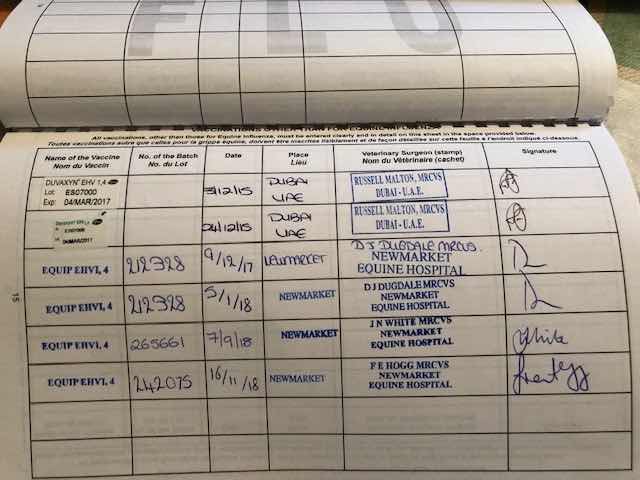 FLU
VACCINATIONS OTHER THAN FOR EQUINE INFLUENZA
All vaccinations, other than those for Equine Influenza, must be entered clearly and in detail on this sheet in the space provided below.
Toutes vaccinations autre que celles pour la grippe équine, doivent être inscrites lisiblement et de façon détaillée sur cette feuille à l'endroit indiqué ci-dessous.
Name of the Vaccine No. of the Batch Date Place Veterinary Surgeon (stamp) Signature
Nom du Vaccin No. du Lot Lieu Nom du Vétérinaire (cachet)
DUVAXYN EHV 1,4
Lot: ES07000
Exp: 04/MAR/2017
/12/15 DUBAI UAE RUSSELL MALTON, MRCVS
DUBAI - U.A.E.
04/MAR/2017
24/12/15 DUBAI UAE RUSSELL MALTON, MRCVS
DUBAI - U.A.E.
EQUIP EHV1, 4 212328 9/12/17 NEWMARKET D J DUGDALE MRCVS.
NEWMARKET
EQUINE HOSPITAL
EQUIP EHV1, 4 212328 5/1/18 NEWMARKET D J DUGDALE MRCVS
NEWMARKET
EQUINE HOSPITAL
EQUIP EHV1, 4 265661 7/9/18 NEWMARKET J N WHITE MRCVS
NEWMARKET
EQUINE HOSPITAL
White
EQUIP EHV1, 4 242075 16/11/18 NEWMARKET F E HOGG MRCVS
NEWMARKET
EQUINE HOSPITAL
15